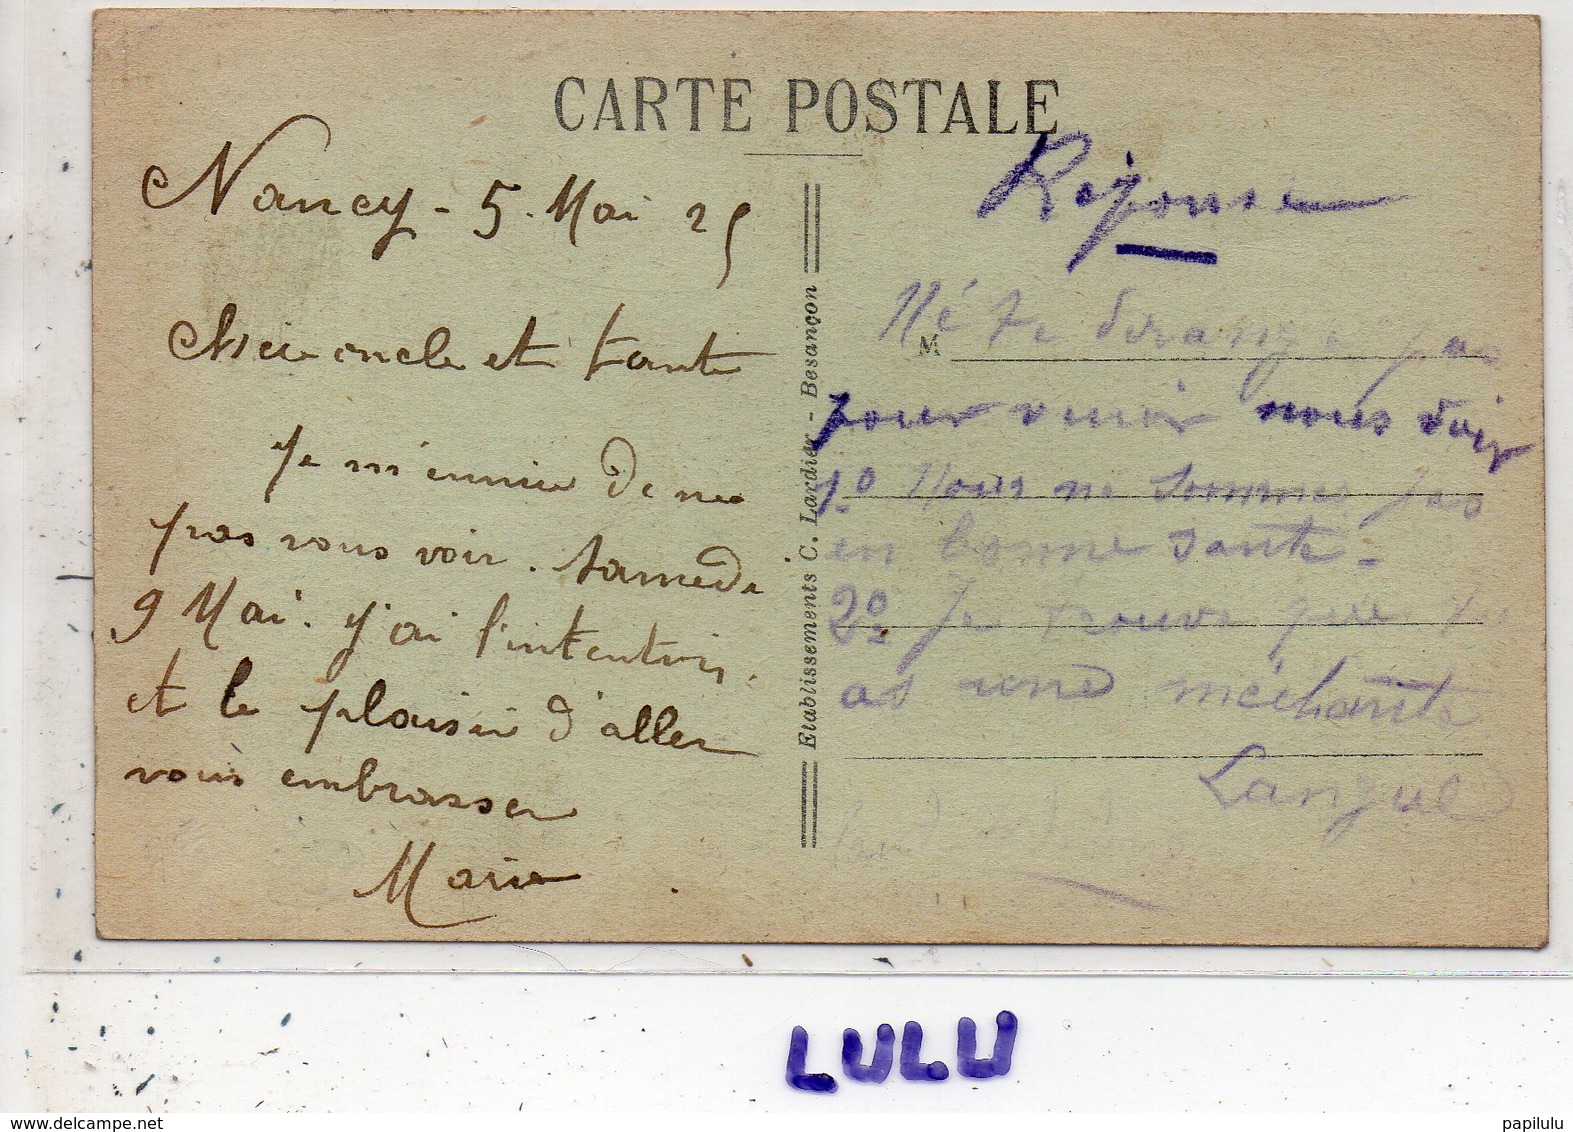 CARTE POSTALE
Nancy - 5. Mai 25
Cher oncle et tante
Je m'ennuie de ne
pas vous voir. Samedi
9 Mai. j'ai l'intention.
et le plaisir d'aller
vous embrasser
Marie
Etablissements C. Lardier - Besançon
Réponse
M
Né te derange pas
pour venir nous voir
1º Nous ne sommes pas
en bonne santé -
2º Je trouve que tu
as une méchante
Langue
LULU
papilulu